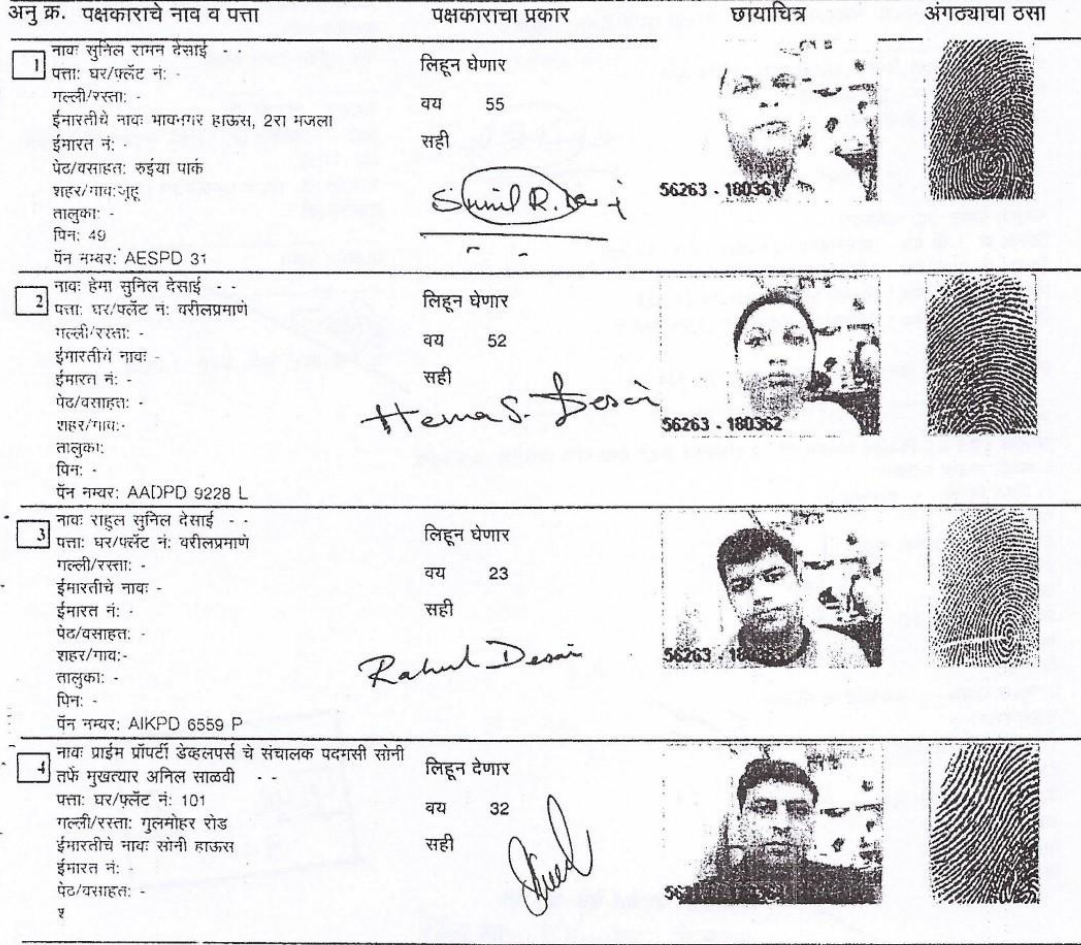 अनु क्र. पक्षकाराचे नाव व पत्ता पक्षकाराचा प्रकार छायाचित्र अंगठ्याचा ठसा
1
नावः सुनिल रामन देसाई - -
पत्ताः घर/फ्लॅट नं: -
गल्ली/रस्ता: -
ईमारतीचे नावः भावनगर हाऊस, 2रा मजला
ईमारत नं: -
पेठ/वसाहत: रुईया पार्क
शहर/गाव:जूहू
तालुका: -
पिन: 49
पॅन नम्बर: AESPD 31
लिहून घेणार
वय 55
सही
Sunil R.
56263 - 180361
2
नावः हेमा सुनिल देसाई - -
पत्ताः घर/फ्लॅट नं: वरीलप्रमाणे
गल्ली/रस्ता: -
ईमारतीचे नावः -
ईमारत नं: -
पेठ/वसाहत: -
शहर/गाव:-
तालुका:
पिन: -
पॅन नम्बर: AADPD 9228 L
लिहून घेणार
वय 52
सही
Hema S. Desai
56263 - 180362
3
नावः राहुल सुनिल देसाई - -
पत्ताः घर/फ्लॅट नं: वरीलप्रमाणे
गल्ली/रस्ता: -
ईमारतीचे नावः -
ईमारत नं: -
पेठ/वसाहत: -
शहर/गाव:-
तालुका: -
पिन: -
पॅन नम्बर: AIKPD 6559 P
लिहून घेणार
वय 23
सही
Rahul Desai
56263 -
4
नावः प्राईम प्रॉपर्टी डेव्हलपर्स चे संचालक पदमसी सोनी
तर्फे मुखत्यार अनिल साळवी - -
पत्ताः घर/फ्लॅट नं: 101
गल्ली/रस्ता: गुलमोहर रोड
ईमारतीचे नावः सोनी हाऊस
ईमारत नं: -
पेठ/वसाहत: -
लिहून देणार
वय 32
सही